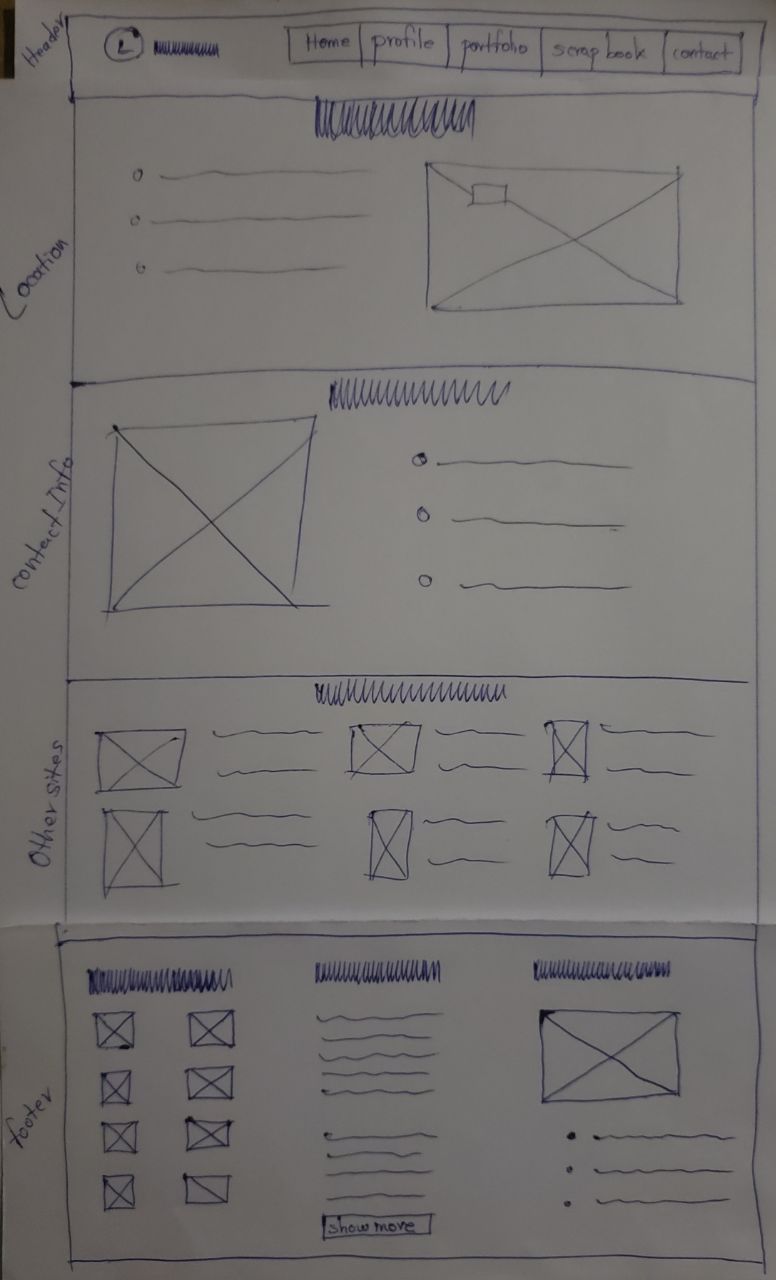 Header
L
Home
profile
portfolio
scrap book
contact
Location
Contact Info
Other sites
footer
show more